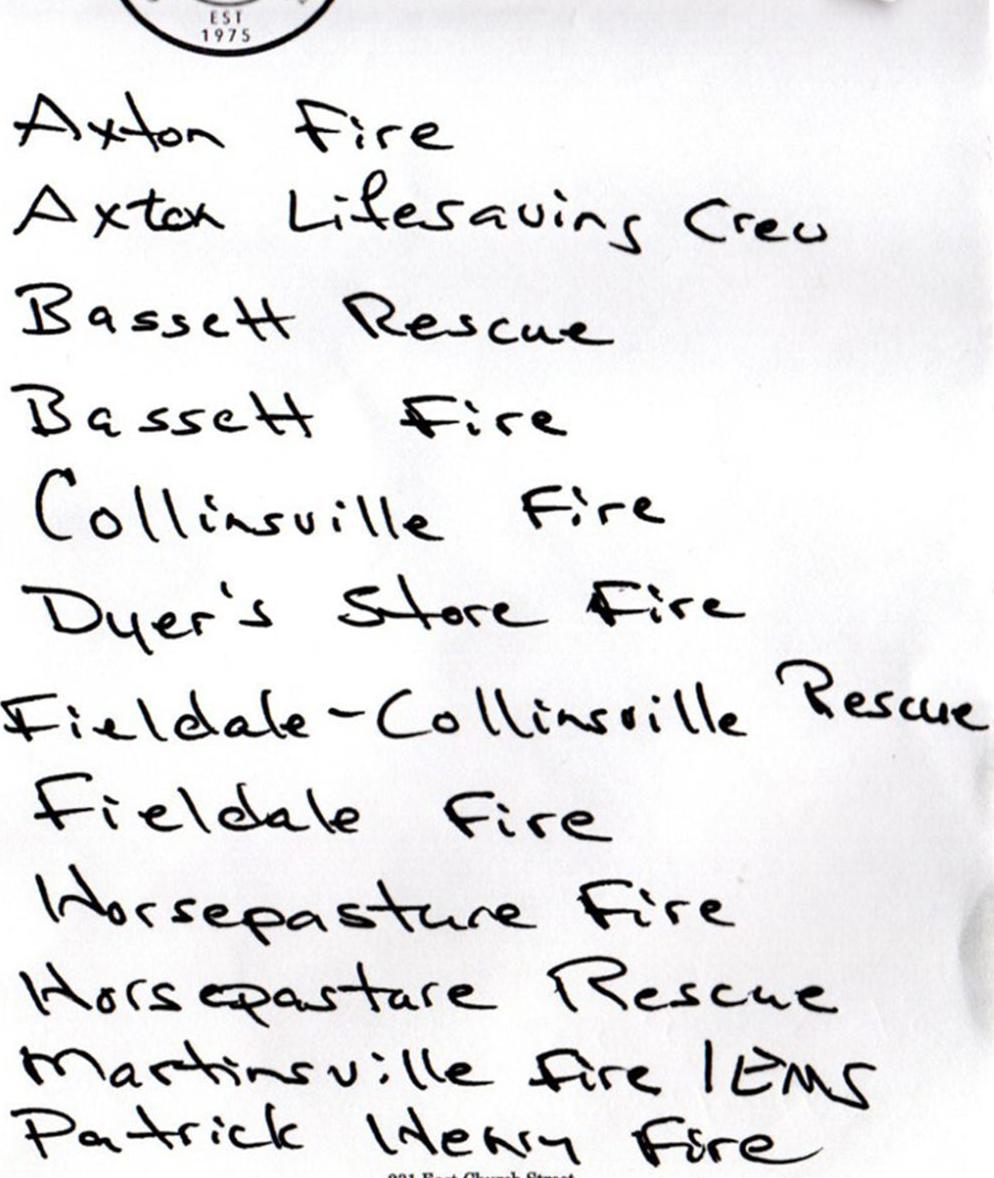 EST
1975
Axton Fire
Axton Lifesaving Crew
Bassett Rescue
Bassett Fire
Collinsville Fire
Dyer's Store Fire
Fieldale-Collinsville Rescue
Fieldale Fire
Horsepasture Fire
Horsepasture Rescue
Martinsville Fire/EMS
Patrick Henry Fire
East Church Street